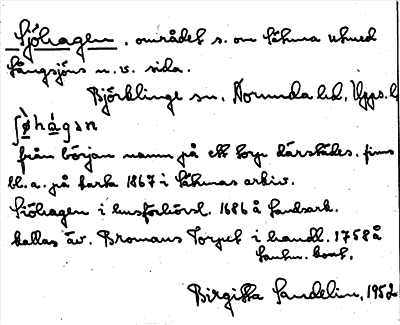 Sjöhagen, området s. om Sätuna utmed
Långsjöns n.v. sida.
Björklinge sn, Norunda hd, Upps. l.
ʃø̀hágən
från början namn på ett torp därstädes. finns
bl. a. på karta 1867 i Sätunas arkiv.
Siöhagen i husförhörsl. 1686 å Landsark.
kallas äv. Bromans Torpet i handl. 1758 å
Lantm. kont.
Birgitta Sandelin, 1952